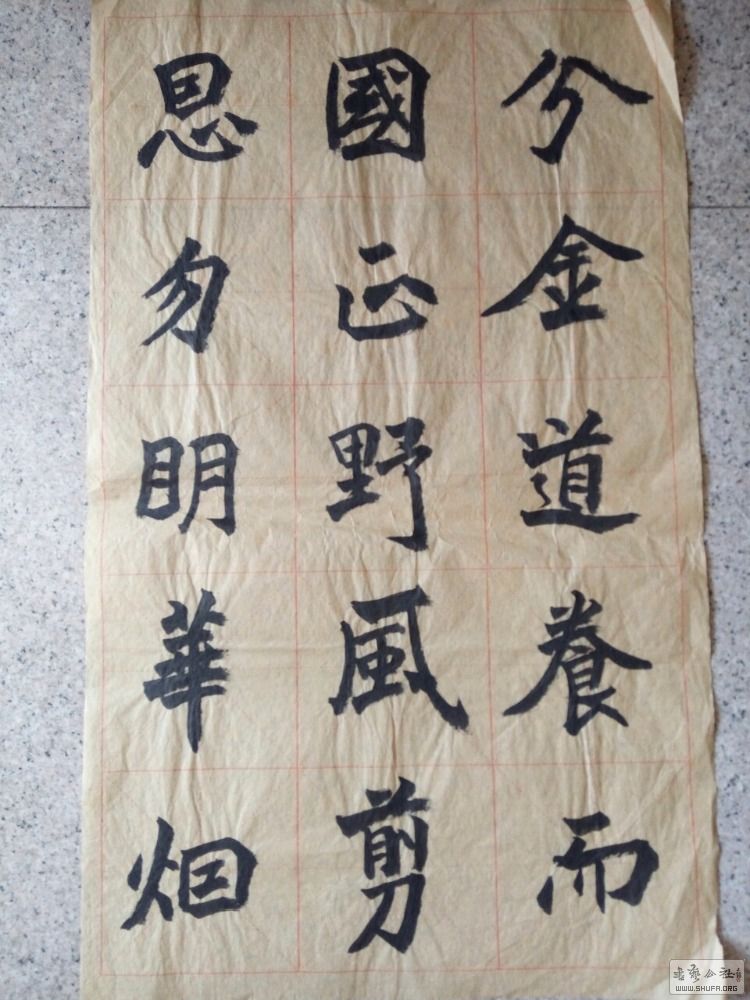 分金道養而
國正野風剪
恩勿明華烟
書藝公社
WWW.SHUFA.ORG